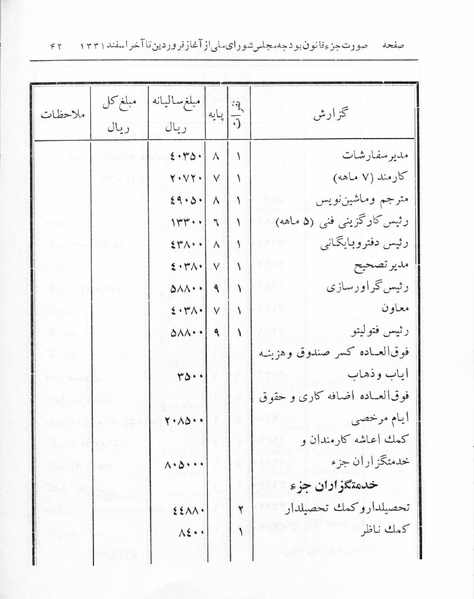 صفحه صورت جزء قانون بودجه مجلس شورای ملی از آغاز فروردین تا آخر اسفند ۱۳۳۱ ۴۲
گزارش نفرات پایه مبلغ سالیانه ریال مبلغ کل ریال ملاحظات
مدیر سفارشات ۱ ۸ ۴۰۳۵۰
کارمند (۷ ماهه) ۱ ۷ ۲۰۷۲۰
مترجم و ماشین‌نویس ۱ ۸ ۴۹۰۵۰
رئیس کارگزینی فنی (۵ ماهه) ۱ ۶ ۱۳۳۰۰
رئیس دفتر و بایگانی ۱ ۸ ۴۳۸۰۰
مدیر تصحیح ۱ ۷ ۴۰۳۸۰
رئیس گراورسازی ۱ ۹ ۵۸۸۰۰
معاون ۱ ۷ ۴۰۳۸۰
رئیس فتولیتو ۱ ۹ ۵۸۸۰۰
فوق‌العاده کسر صندوق و هزینه
ایاب و ذهاب ۳۵۰۰
فوق‌العاده اضافه کاری و حقوق
ایام مرخصی ۲۰۸۵۰۰
کمك اعاشه کارمندان و
خدمتگزاران جزء ۸۰۵۰۰۰
خدمتگزاران جزء
تحصیلدار و کمك تحصیلدار ۲ ۴۴۸۸۰
کمك ناظر ۱ ۸۴۰۰